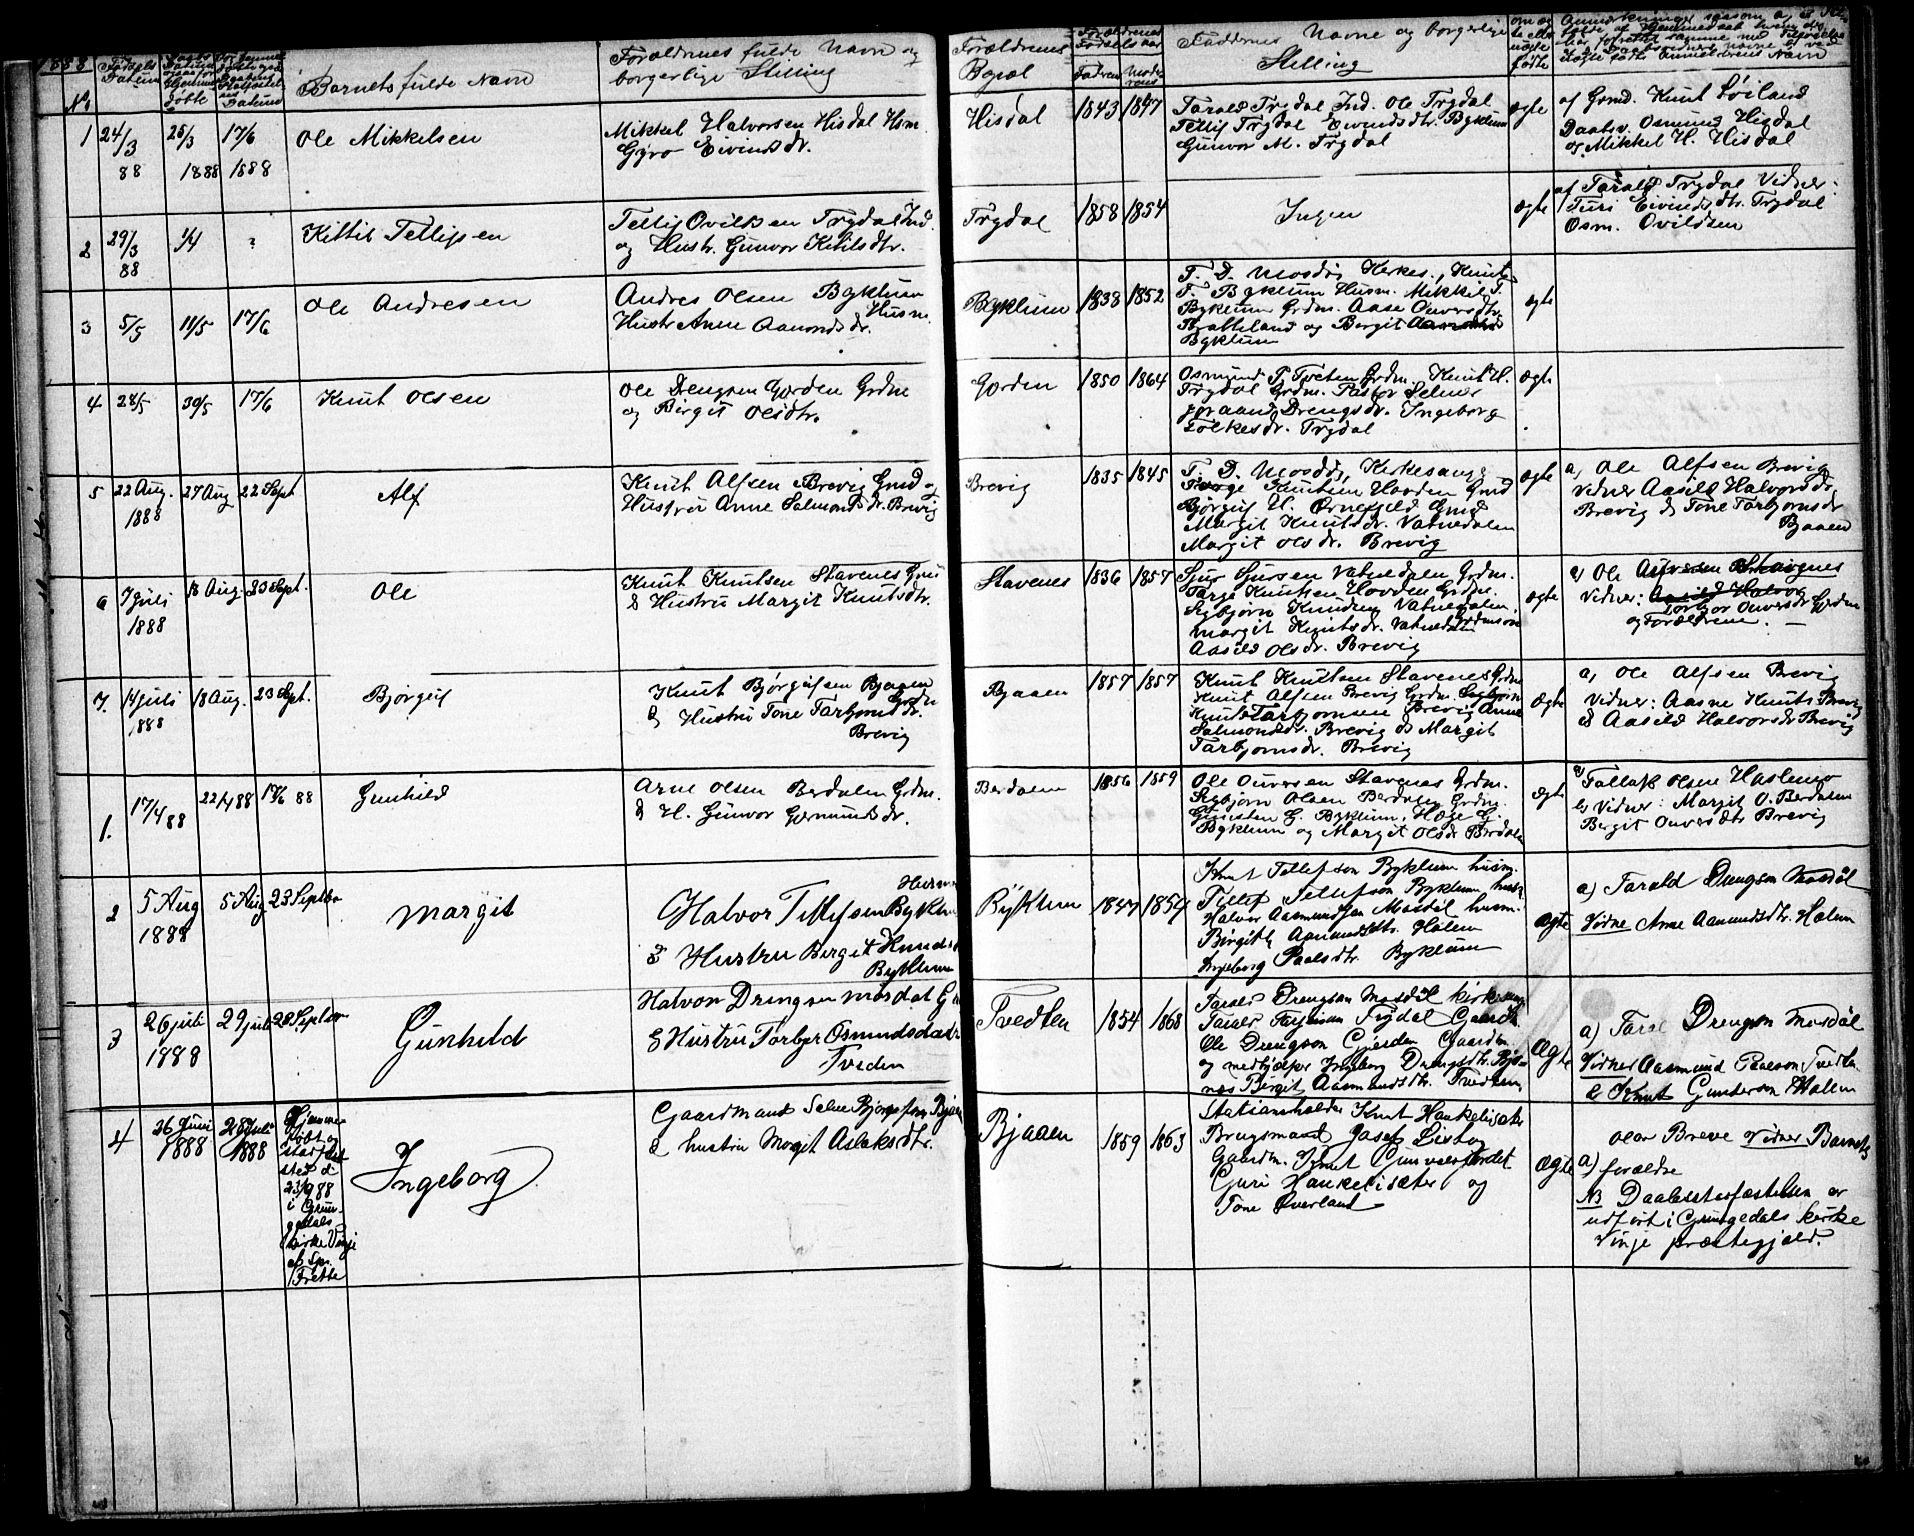 1888
No
Fødsels Datum
Barnets fulde Navn
Forældrenes fulde Navn og
borgerlige Stilling
Forældrenes
Bopæl
Forældrenes
Fødselsaar
Fadrens
Moderens
Faddernes Navne og borgerlige
Stilling
1 24/3 88 25/3 1888 17/6 1888
Ole Mikkelsen
Mikkel Halvorsen Hisdal Hsm.
Gyro Eivindsdr.
Hisdal 1843 1847
Tarald Trydal Ind. Ole Trydal
Tellif Trydal Eivindsdtr. Byklum
Gunvor M. Trydal
ægte
af Grmd. Knut Løiland
Daabsv. Osmund Hisdal
og Mikkel H. Hisdal
2 29/3 88 1/4 ?
Kittil Tellifsen
Tellif Ovildsen Trydal Ind.
og Hustr. Gunvor Kittilsdtr.
Trydal 1858 1854
Ingen
ægte
af Tarald Trydal Vidner:
Turi Eivindsdtr. Trydal
Osm. Ovildsen
3 5/5 11/5 17/6
Ole Andresen
Andres Olsen Byklum
Husm.
Hustr Anne Aamondsdr.
Byklum 1838 1852
T. D. Mosdøl, Kerkes., Knut
T. Byklum Husm. Mikkil T.
Byklum Grdm. Aase Ouversdtr
Brotteland og Bergit
Byklum
ægte
4 28/5 30/5 17/6
Knut Olsen
Ole Dengsen Gjerden Grdm
og Birgit Olsdtr.
Gjerden 1850 1864
Osmund P. Tveten Grdm. Knut H.
Trydal Grdm. Pastor Selmer
Joraand Drengsdr. Ingeborg
Folkesdr. Trydal
ægte
5 22 Aug. 1888 27 Aug 22 Sept
Alf
Knut Alfsen Brevig Gmd og
Hustru Anne Salmondsdr. Brevig
Brevig 1835 1845
T. D. Mosdøl, Kerkesang.
Targe Knutsen Hovden Gmd
Bjørguf U. Ørnefjeld Gmd
Margit Knutsdr. Vatnedalen
Margit Olsdr. Brevig
ægte
a, Ole Alfsen Brevig
Vidner Aasild Halvorsdr
Brevig & Tone Tarbjornsdr
Bjaaen
6 7 Juli 1888 18 Aug. 23 Sept.
Ole
Knut Knutsen Stavenes Gmd
& Hustru Margit Knutsdtr.
Stavenes 1836 1857
Sjur Sjursen Vatnedalen Grdm.
Targe Knutsen Hovden Grdm.
Sigbjørn Knudsen Vatnedalen,
Margit Knutsdr. Vatnedalen
Aasild Olsdr. Brevig
ægte
a) Ole
Vidner:
Torbjor Ouversdr
og Forældrene. —
7. 14 Juli 1888 18 Aug. 23 Sept.
Bjørguf
Knut Bjørgufsen Bjaaen
Grdm
& Hustru Tone Tarbjornsdr.
Brevig
Bjaaen 1857 1857
Knut Knutsen Stavenes Grdm
Knut Alfsen Brevig Grdm.
Tarbjornsen Brevig Anne
Salmondsdr. Brevig & Margit
Tarbjornsdr. Brevig
ægte
a, Ole Alfsen Brevig
Vidner: Aasne Knuts Brevig
& Aasild Halvorsdr Brevig
1. 17/4 88 22/4 88 17/6 88
Gunhild
Arne Olsen Berdalen Grdm.
& H. Gunvor Gjermundsdr.
Berdalen 1856 1859
Ole Ouversen Stavenes Grdm.
Sigbjørn Olsen Berdalen Grdm.
Gunsten G. Byklum, Hæge G.
Byklum og Margit Olsdr Berdalen
ægte
a) Tallak Olsen Haslemo
b) Vidner: Margit O. Berdalen
Bergit Ouversdtr Brevig
2 5 Aug 1888 5 Aug 23 Septbr
Margit
Husm
Halvor Tellefsen Byklum
& Hustru Bergit Knudsd
Byklum
Byklum 1857 1859
Knut Tellefson Byklum husm.
Tellef Tellefson Byklum husm
Halvor Aasmundsen Mosdøl husm.
Birgith Aanundsdtr. Holen
Ingeborg Paalsdtr. Byklum
Ægte
a) Tarald Drengson Mosdøl
Vidne Anne Aamundsdtr. Holen
3 26 juli 1888 29 juli 23 Septbr
Gunhild
Halvor Drengsen Mosdal G
& Hustru Torbjor Osmundsdatr
Tveden
Tvedten 1854 1868
Tarald Drengson Mosdøl kirkesang.
Tarald Tarjeison Trydal Gaardm
Ole Drengson Gjerden Gaardm.
og medhjælper Ingeborg Drengsdtr. Bjø-
næs Birgit Aasmundsdtr. Tvedten
Ægte
a) Tarald Drengson Mosdøl
Vidner Aasmund Paalson Tvedten
& Knut Gunderson Holen
4 26 Juni 1888 28 Juli 1888
Hjemme-
døbt og
stadfæ
sted d.
23/9 88
i Grun-
gedals
kirke Vinje
af Spr.
Frette
Ingeborg
Gaardmand Salve Bjørgufson Bjaaen
& hustru Margit Aslaksdtr.
Bjaaen 1859 1863
Stationsholder Knut Haukelisæter
Brugsmand Josef Listog
Gaardm. Knut Gunvarjordet
Guri Haukelisæter og
Tone Øverland
Ægte
Olav Breve Vidner Barnets
a) forældre
NB Daabsstadfæstelsen er
udført i Grungedals kirke
Vinje præstegjæld.